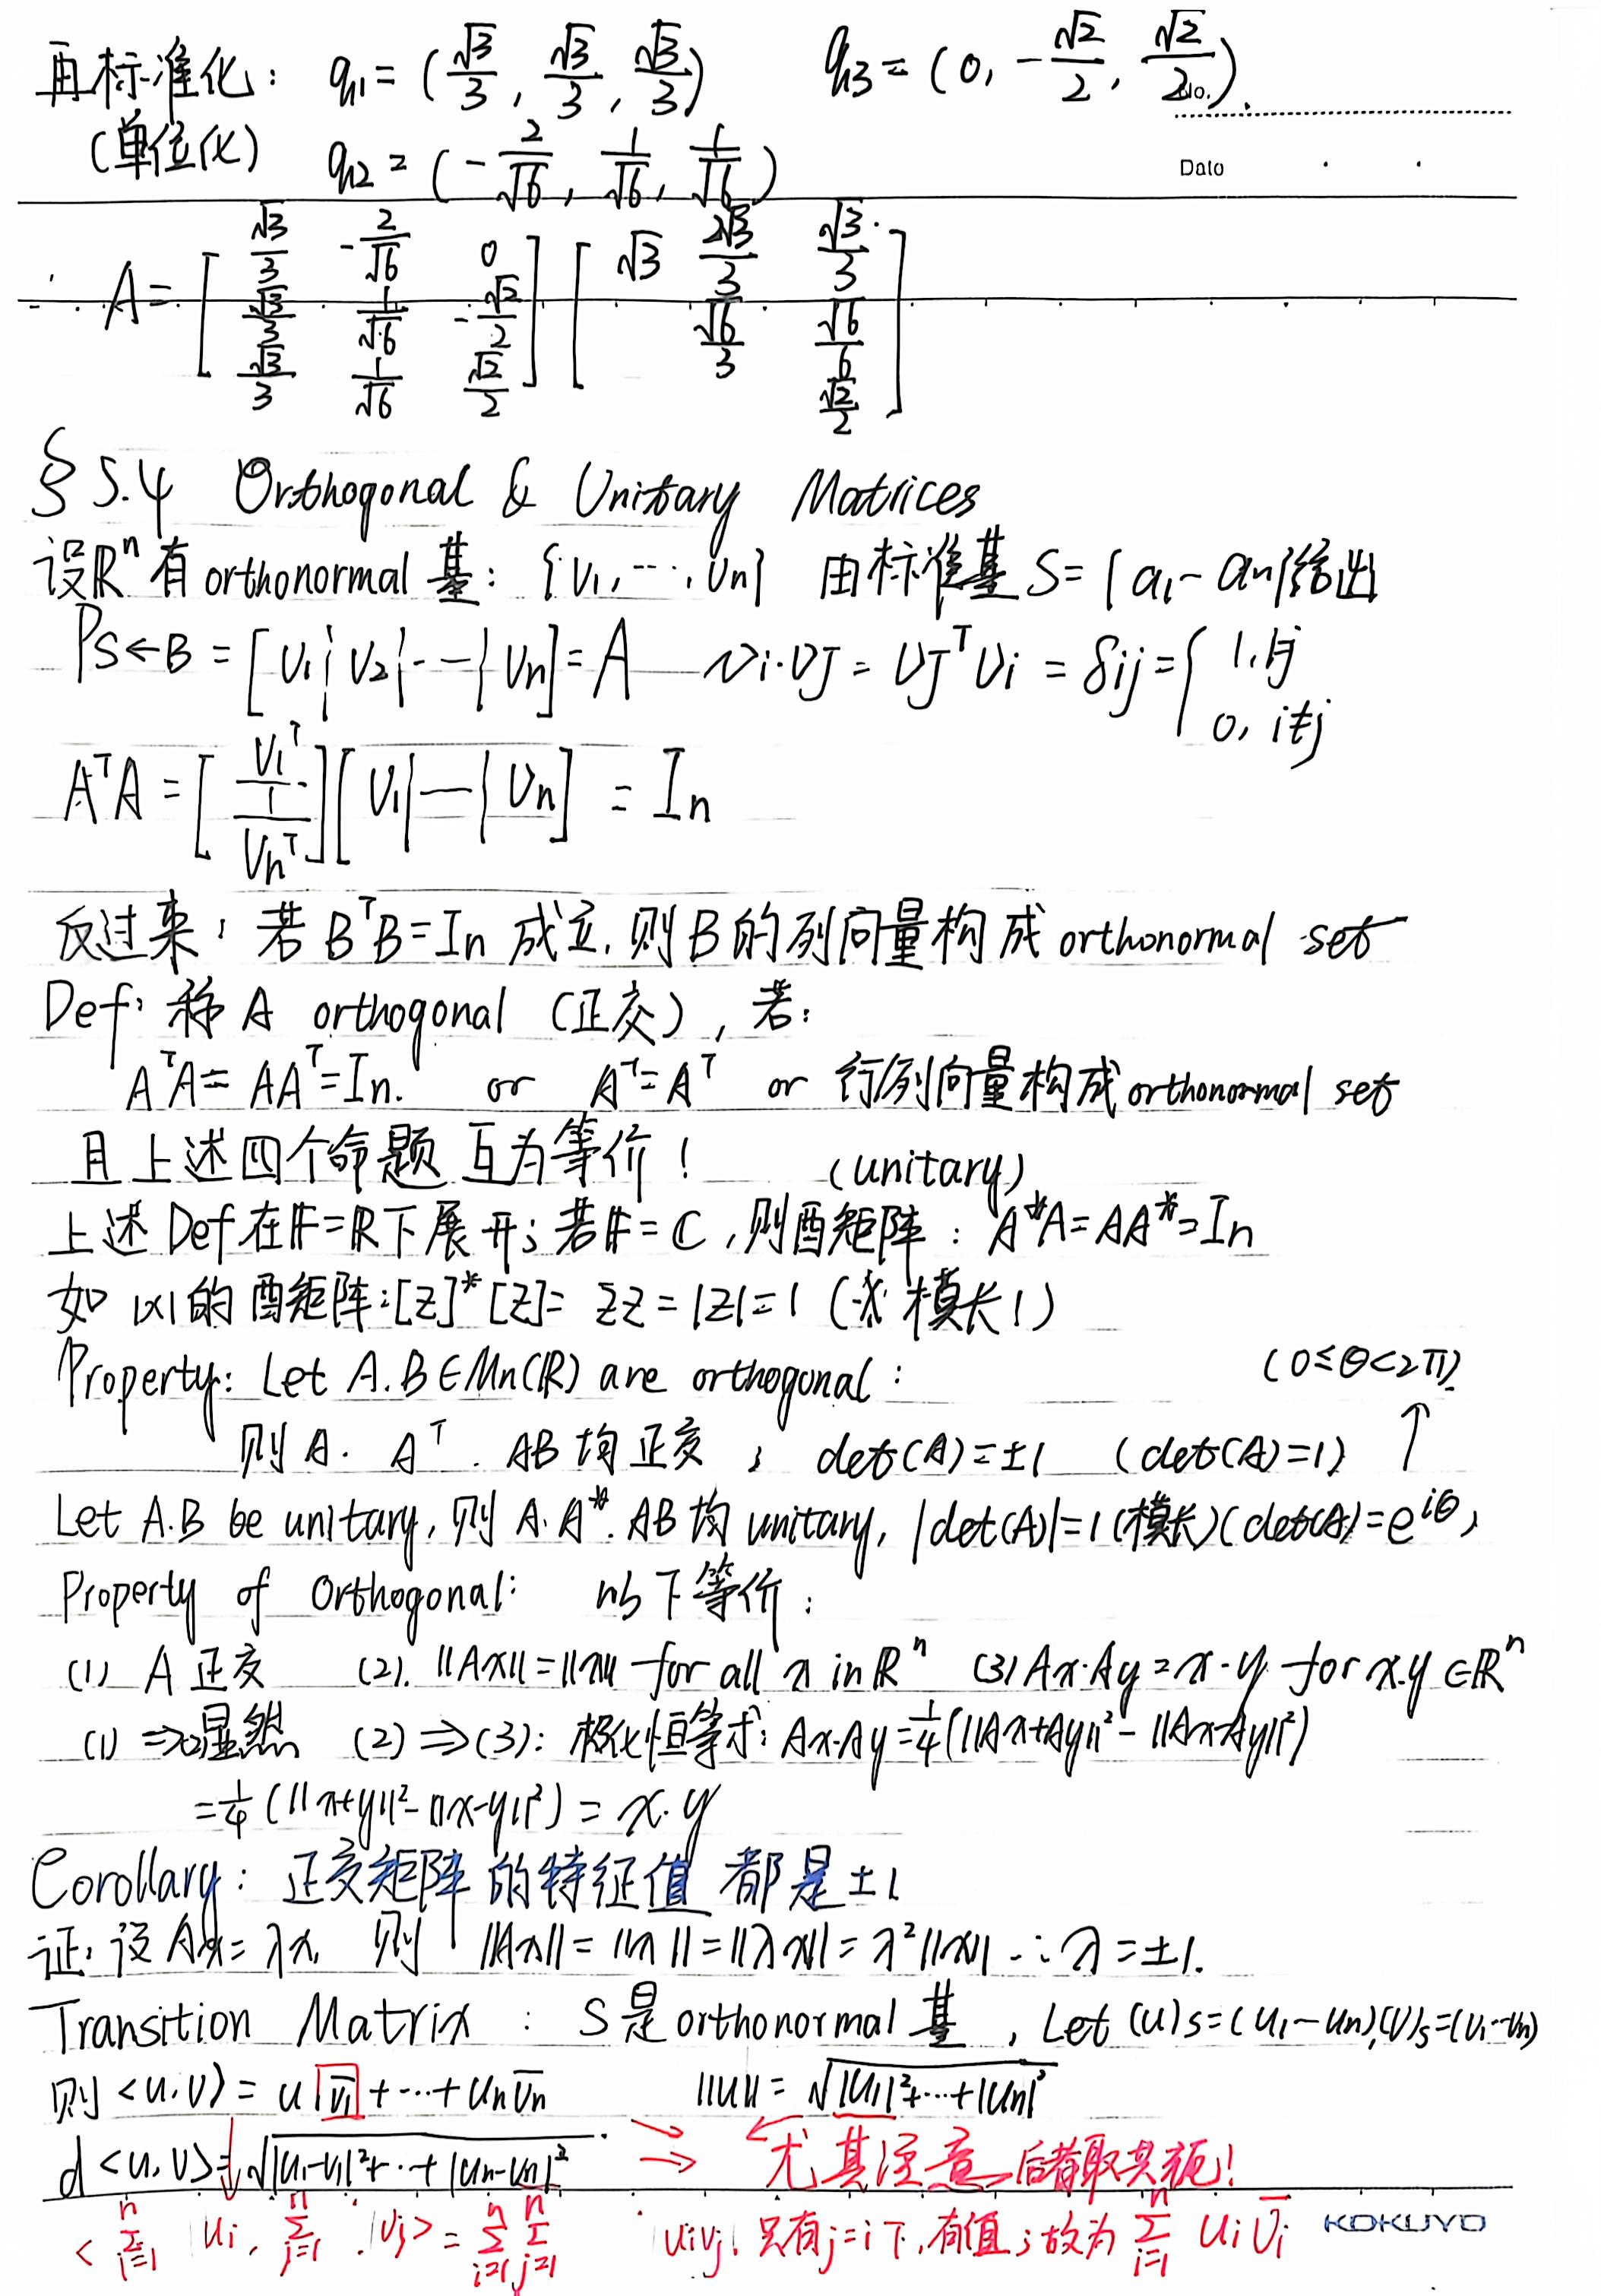 再标准化: q₁ = (√3/3, √3/3, √3/3) q₃ = (0, -√2/2, √2/2).
No.
(单位化) q₂ = (-2/√6, 1/√6, 1/√6)
Date
∴ A = [√3/3 -2/√6 0; √3/3 1/√6 -√2/2; √3/3 1/√6 √2/2] [√3 2√3/3 √3/3; √6/3 √6/6; √2/2]
§5.4 Orthogonal & Unitary Matrices
设ℝⁿ有orthonormal基: {v₁, ⋯, vn} 由标准基 S = {a₁ - an}给出
P_{S←B} = [v₁ | v₂ | -- | vn] = A vi·vj = vjᵀvi = δij = { 1, i=j
0, i≠j
AᵀA = [v₁ᵀ | vnᵀ] [v₁ | — | vn] = In
反过来: 若BᵀB = In 成立, 则B的列向量构成orthonormal set
Def: 称 A orthogonal (正交), 若:
AᵀA = AAᵀ = In. or A⁻¹ = Aᵀ or 行/列向量构成orthonormal set
且上述四个命题 互为等价! (unitary)
上述Def在𝔽=ℝ下展开; 若𝔽=ℂ, 则酉矩阵: A*A = AA* = In
如 1x1的酉矩阵: [z]*[z] = z̄z = |z| = 1 (模长1)
Property: Let A.B ∈ Mn(ℝ) are orthogonal: (0≤θ<2π)
则 A. Aᵀ. AB 均正交; det(A) = ±1 (det(A)=1) ↑
Let A.B be unitary, 则 A. A*. AB 均 unitary, |det(A)| = 1 (模长) (det(A) = e^{iθ},
Property of Orthogonal: 以下等价:
(1) A正交 (2). ||Ax|| = ||x|| for all x in ℝⁿ (3) Ax·Ay = x·y for x.y ∈ ℝⁿ
(1) ⇒(2)显然 (2) ⇒ (3): 极化恒等式: Ax·Ay = 1/4 (||Ax+Ay||² - ||Ax-Ay||²)
= 1/4 (||x+y||² - ||x-y||²) = x·y
Corollary: 正交矩阵的特征值 都是±1
证: 设 Ax = λx, 则 ||Ax|| = ||x|| = ||λx|| = λ²||x|| ∴ λ = ±1.
Transition Matrix : S是orthonormal基, Let (u)s = (u₁-un), (v)s = (v₁-vn)
则 <u.v> = u₁v̄₁ + ⋯ + unv̄n ||u|| = √(|u₁|²+⋯+|un|²)
d<u.v> = √(|u₁-v₁|²+⋯+|un-vn|²) → 尤其注意 后者取共轭!
< Σ_{i=1}^{n} ui, Σ_{j=1}^{n} vj > = Σ_{i=1}^{n} Σ_{j=1}^{n} uivj, 只有j=i下, 有值; 故为 Σ_{i=1}^{n} ui v̄i
KOKUYO